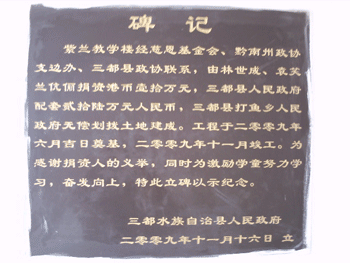 碑记
紫兰教学楼经慈恩基金会、黔南州政协
支边办、三都县政协联系，由林世成、袁艾
兰伉俪捐资港币壹拾万元，三都县人民政府
配套贰拾陆万元人民币，三都县打鱼乡人民
政府无偿划拨土地建成。工程于二零零九年
六月吉日奠基，二零零九年十一月竣工。为
感谢捐资人的义举，同时为激励学童努力学
习，奋发向上，特此立碑以示纪念。
三都水族自治县人民政府
二零零九年十一月十六日 立